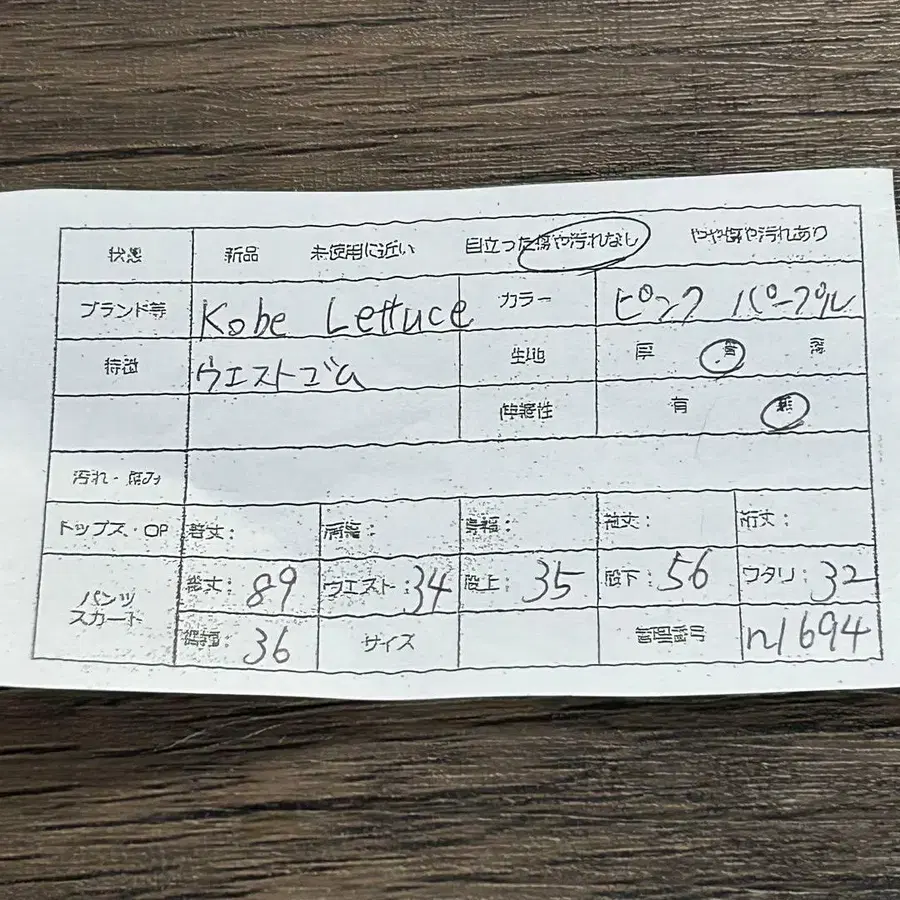 状態 新品 未使用に近い 目立った傷や汚れなし やや傷や汚れあり
ブランド等 Kobe Lettuce カラー ピンク パープル
特徴 ウエストゴム 生地 厚 普 薄
伸縮性 有 無
汚れ・傷み
トップス・OP 着丈: 肩幅: 身幅: 袖丈: 裄丈:
パンツ スカート 総丈: 89 ウエスト: 34 股上: 35 股下: 56 ワタリ: 32
裾幅: 36 サイズ 管理番号 n1694